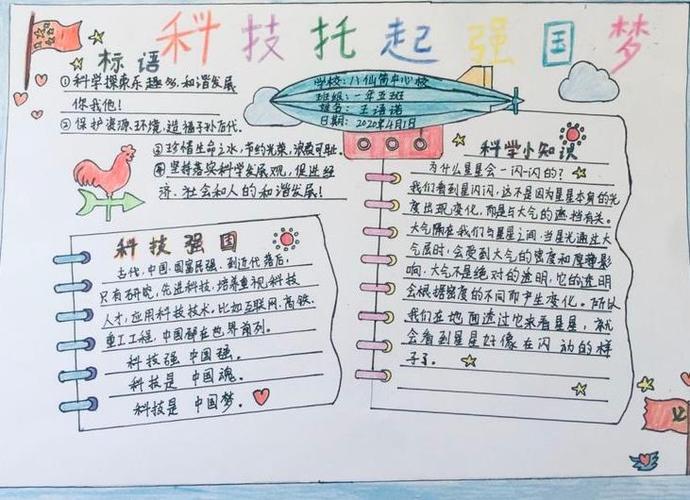 科技托起强国梦
标语
①科学探索乐趣多,和谐发展
你我他!
②保护资源环境,造福子孙后代。
③珍惜生命之水,节约光荣,浪费可耻。
④坚持落实科学发展观,促进经
济、社会和人的和谐发展!
学校:八仙筒中心校
班级:一年五班
姓名:王语诺
日期:2020年4月1日
科技强国
古代,中国,国富民强,到近代落后,
只有研究,先进科技,培养重视科技
人才,应用科技技术。比如互联网、高铁、
重工工程,中国都在世界前列。
科技强 中国强。
科技是 中国魂。
科技是 中国梦。
科学小知识
为什么星星会一闪一闪的?
我们看到星闪闪,这不是因为星星本身的光
度出现变化,而是与大气的遮挡有关。
大气隔在我们与星星之间,当星光通过大
气层时,会受到大气的密度和厚薄影
响,大气不是绝对的透明,它的透明
会根据密度的不同而产生变化。所以
我们在地面透过它来看星星,就
会看到星星好像在闪动的样
子了。